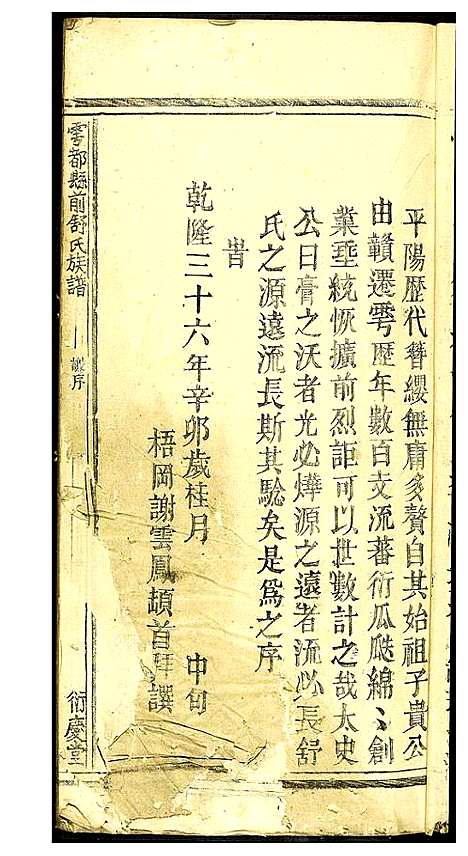 平陽歷代簪纓無庸多贅自其始祖子貴公
由贛遷雩歷年數百支流蕃衍瓜瓞綿〻創
業垂統恢擴前烈詎可以世數計之哉太史
公曰膏之沃者光必燁源之遠者流必長舒
氏之源遠流長斯其騐矣是為之序
旹
乾隆三十六年辛卯歲桂月 中旬
梧岡謝雲鳳頓首拜譔
雩都縣前舒氏族譜 序 衍慶堂